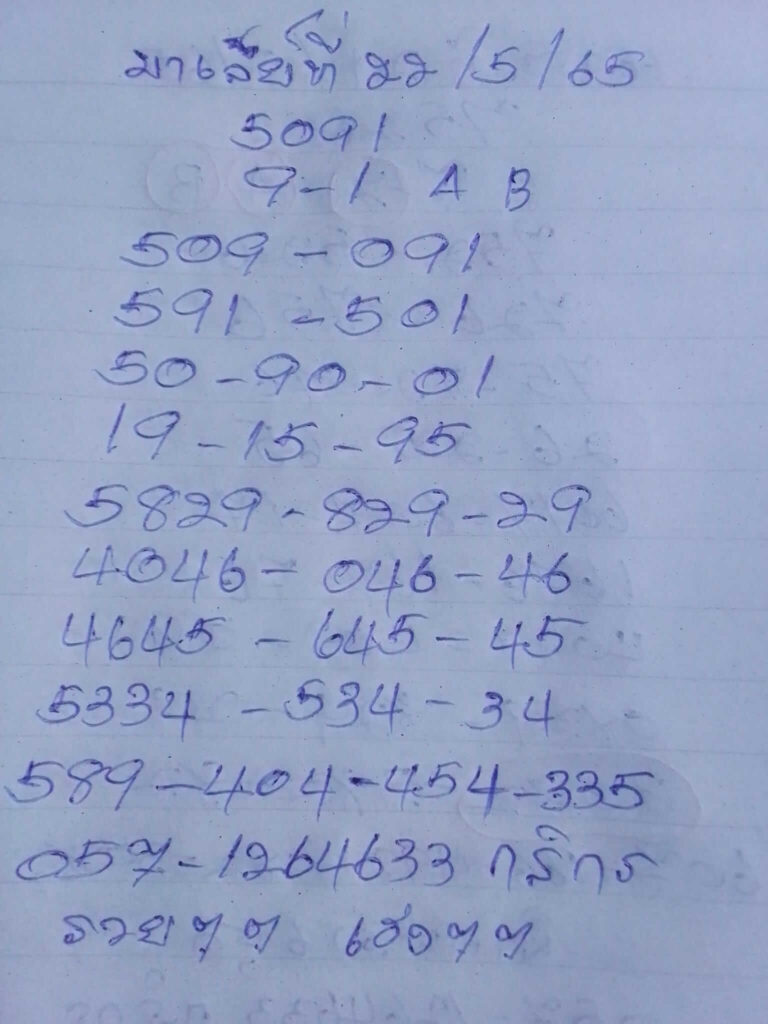 มาเลีย์ที่ 22/5/65
5091
9-1 A B
509-091
591-501
50-90-01
19-15-95
5829-829-29
4046-046-46
4645-645-45
5334-534-34
589-404-454-335
057-1264633 กสิกร
รวยๆๆ เฮงๆๆ